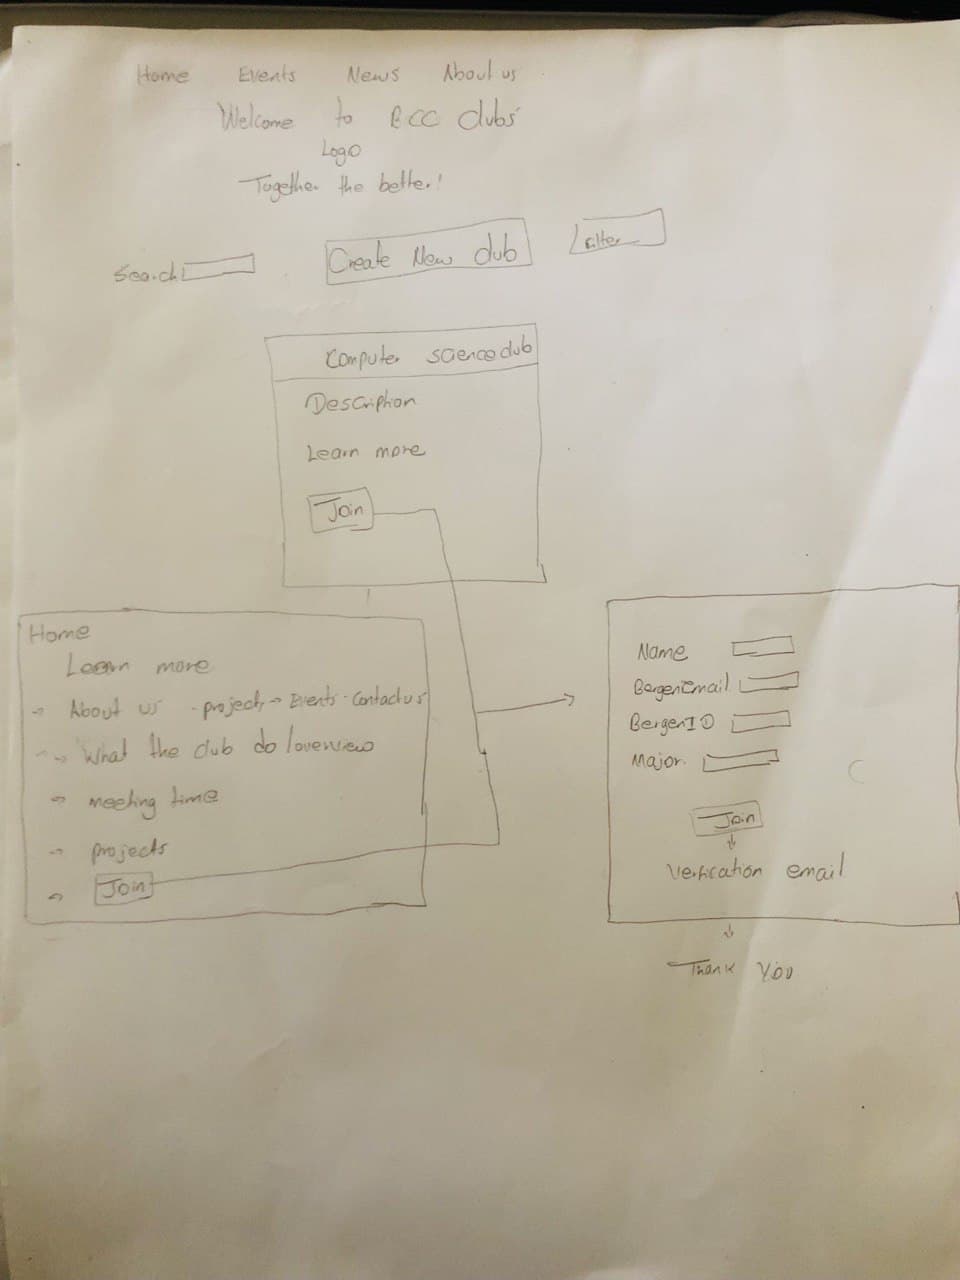 Home Events News About us
Welcome to BCC clubs
Logo
Together the better!
Search Create New club Filter
Computer science club
Description
Learn more
Join
Home
Learn more
→ About us - projects → Events - Contact us
→ What the club do / overview
→ meeting time
→ projects
→ Join
Name
BergenEmail
BergenID
Major
Join
↓
Verfication email
↓
Thank You